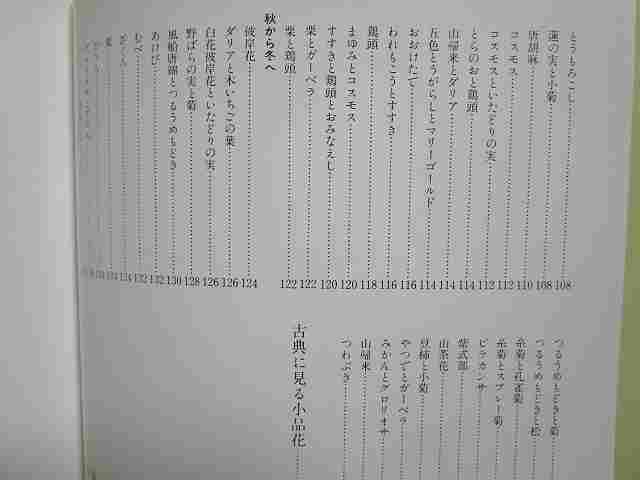 とうもろこし……108
蓮の実と小菊……108
唐胡麻……110
コスモス……112
コスモスといたどりの実……112
とらのおと鶏頭……114
山帰来とダリア……114
五色とうがらしとマリーゴールド……114
おおけたで……116
われもこうとすすき……116
鶏頭……118
まゆみとコスモス……120
すすきと鶏頭とおみなえし……120
栗とガーベラ……122
栗と鶏頭……122
秋から冬へ
彼岸花……124
ダリアと木いちごの葉……126
白花彼岸花といたどりの実……126
野ばらの実と菊……128
風船唐綿とつるうめもどき……130
あけび……132
むべ……132
ざくろ……134
つるうめもどきと菊
つるうめもどきと松
糸菊と孔雀菊
糸菊とスプレー菊
ピラカンサ
紫式部
山茶花
豆柿と小菊
やつでとガーベラ
みかんとグロリオサ
山帰来
つわぶき
古典に見る小品花